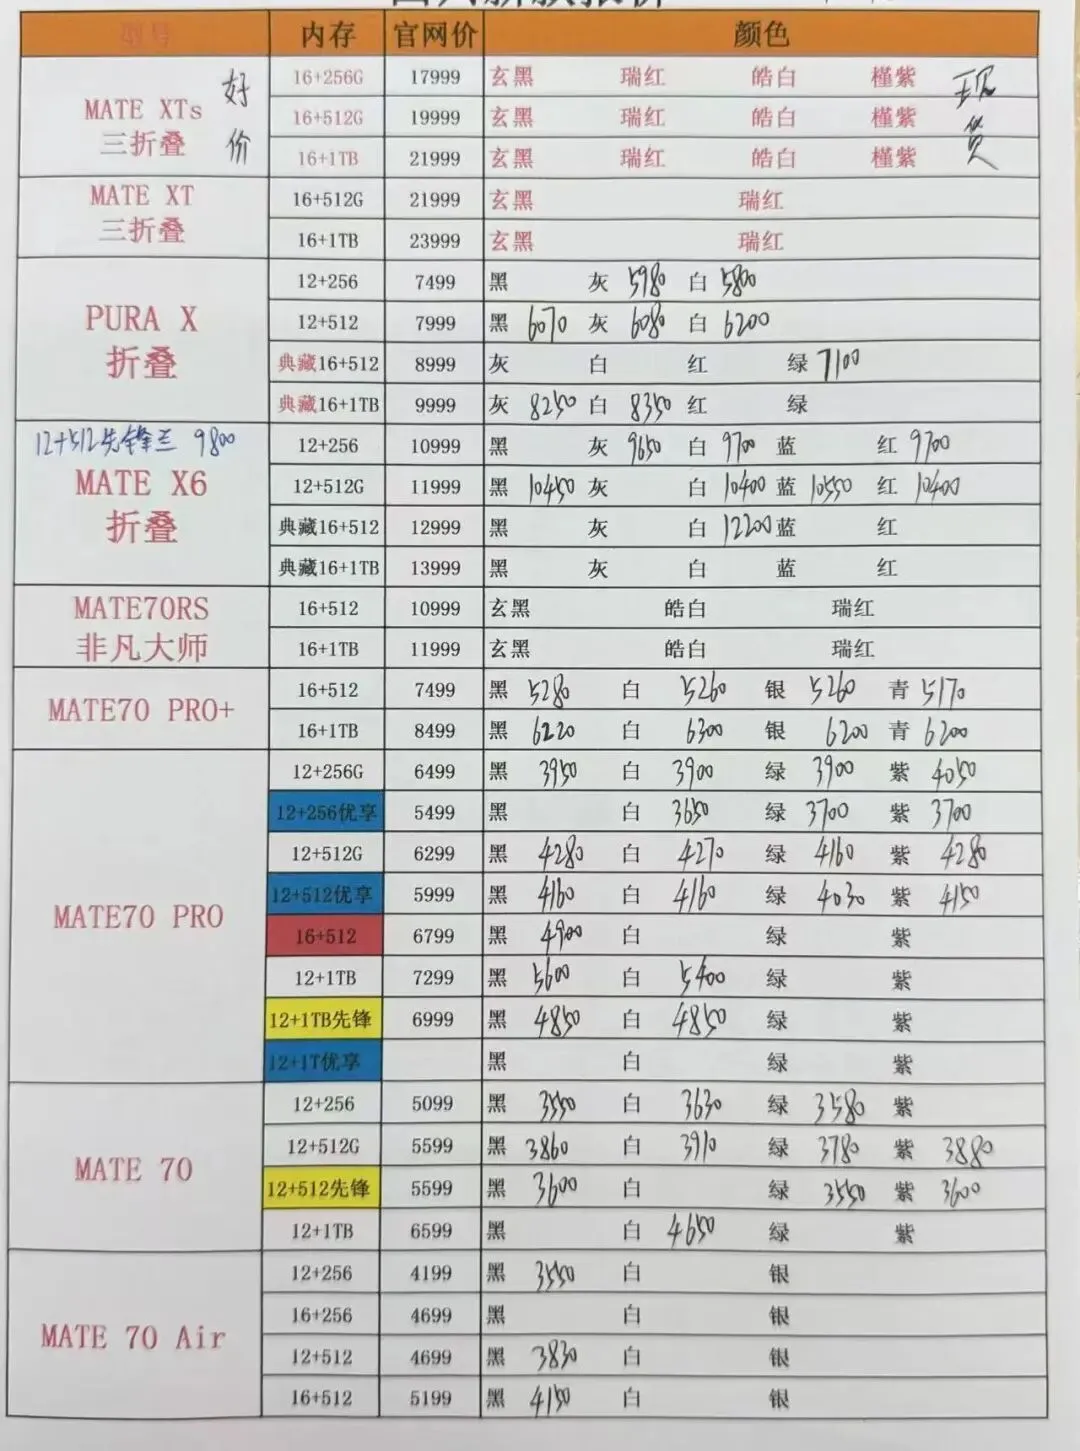 型号 内存 官网价 颜色
MATE XTs 三折叠 好价 现货
16+256G 17999 玄黑 瑞红 皓白 槿紫
16+512G 19999 玄黑 瑞红 皓白 槿紫
16+1TB 21999 玄黑 瑞红 皓白 槿紫
MATE XT 三折叠
16+512G 21999 玄黑 瑞红
16+1TB 23999 玄黑 瑞红
PURA X 折叠
12+256 7499 黑 灰 5980 白 5800
12+512 7999 黑 6070 灰 6080 白 6200
典藏16+512 8999 灰 白 红 绿 7100
典藏16+1TB 9999 灰 8250 白 8350 红 绿
12+512先锋兰 9800
MATE X6 折叠
12+256 10999 黑 灰 9650 白 9700 蓝 红 9700
12+512G 11999 黑 10450 灰 白 10400 蓝 10550 红 10400
典藏16+512 12999 黑 灰 白 12200 蓝 红
典藏16+1TB 13999 黑 灰 白 蓝 红
MATE70RS 非凡大师
16+512 10999 玄黑 皓白 瑞红
16+1TB 11999 玄黑 皓白 瑞红
MATE70 PRO+
16+512 7499 黑 5280 白 5260 银 5260 青 5170
16+1TB 8499 黑 6220 白 6300 银 6200 青 6200
MATE70 PRO
12+256G 6499 黑 3950 白 3900 绿 3900 紫 4050
12+256优享 5499 黑 白 3650 绿 3700 紫 3700
12+512G 6299 黑 4280 白 4270 绿 4160 紫 4280
12+512优享 5999 黑 4160 白 4160 绿 4030 紫 4150
16+512 6799 黑 4900 白 绿 紫
12+1TB 7299 黑 5600 白 5400 绿 紫
12+1TB先锋 6999 黑 4850 白 4850 绿 紫
12+1T优享 黑 白 绿 紫
MATE 70
12+256 5099 黑 3550 白 3630 绿 3580 紫
12+512G 5599 黑 3860 白 3910 绿 3780 紫 3880
12+512先锋 5599 黑 3600 白 绿 3550 紫 3600
12+1TB 6599 黑 白 4650 绿 紫
MATE 70 Air
12+256 4199 黑 3550 白 银
16+256 4699 黑 白 银
12+512 4699 黑 3830 白 银
16+512 5199 黑 4150 白 银